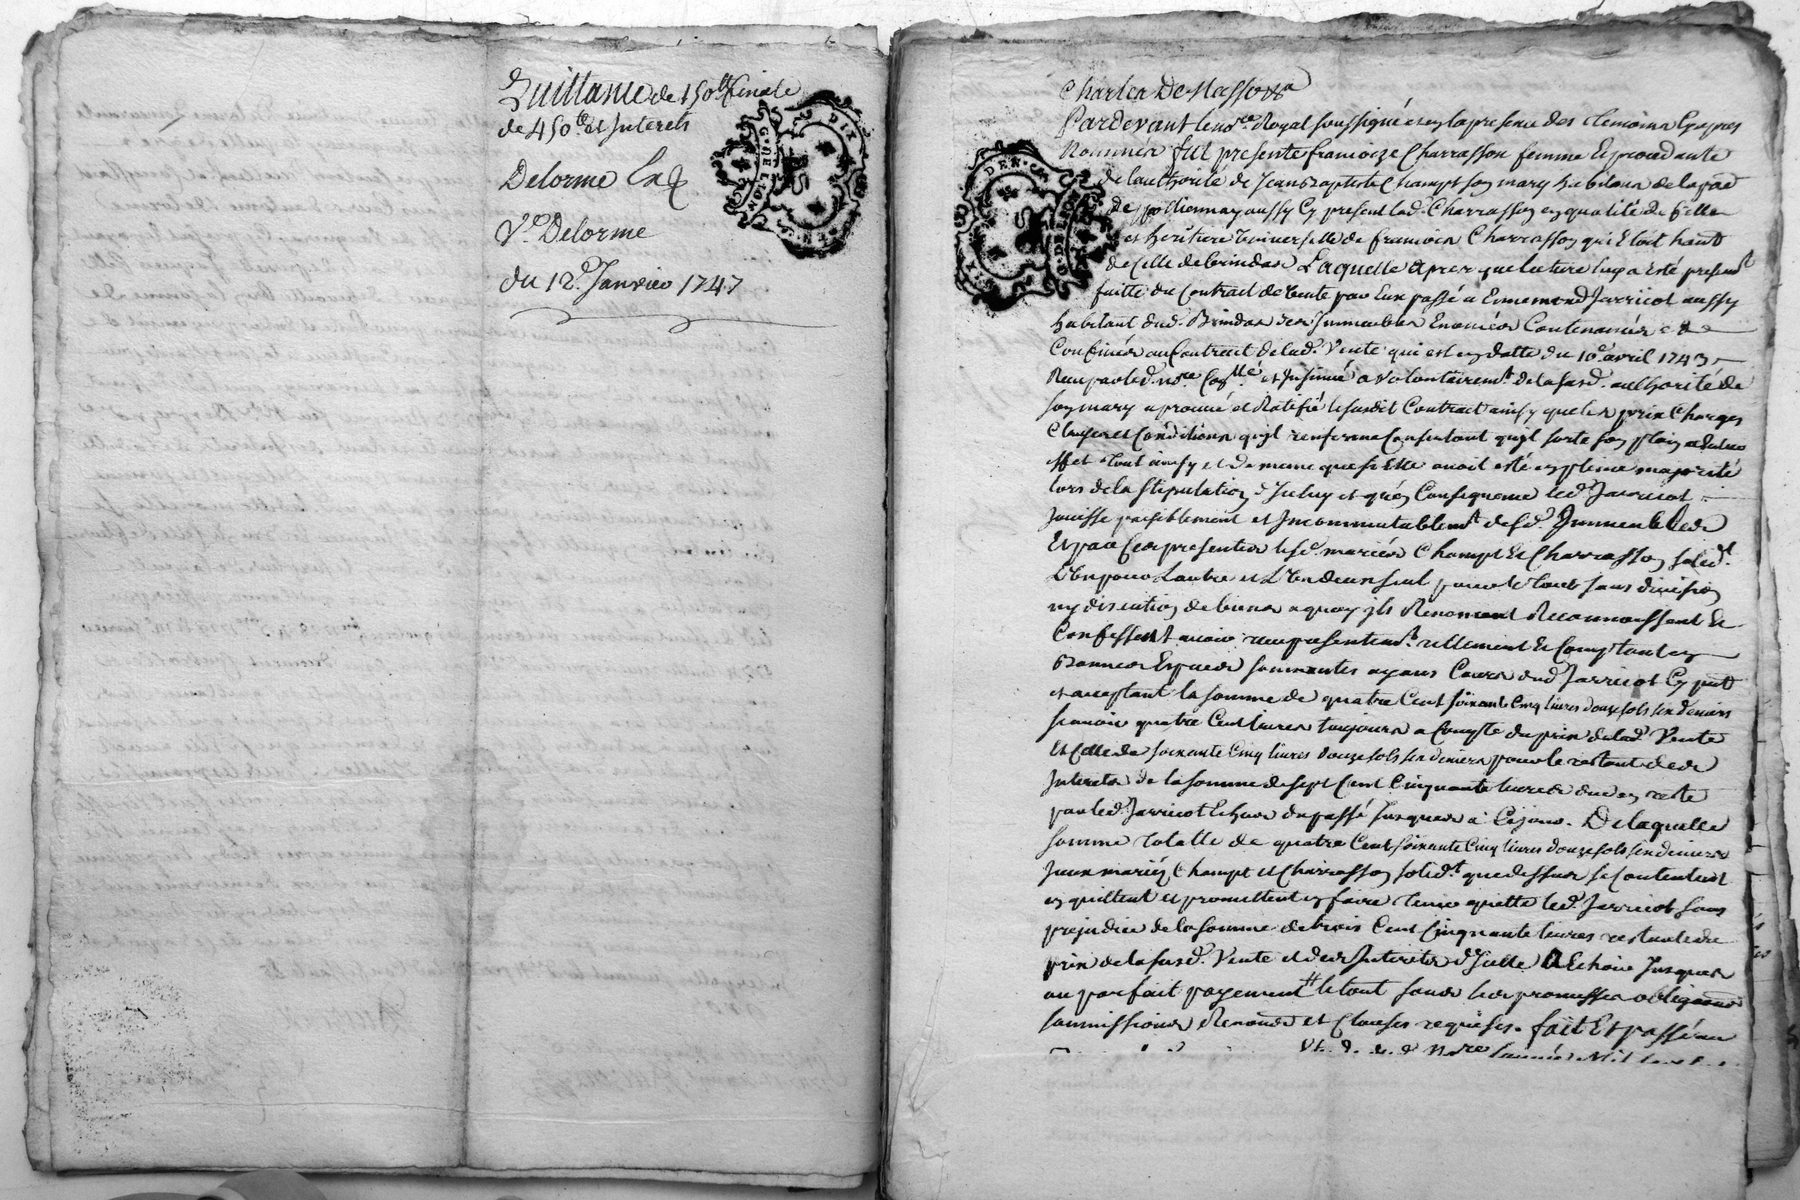 Quittance de 150lt finale
de 450lt et Interets
Delorme
Ve. Delorme
du 12e. Janvier 1747
GNAL. DE LION
DIX DEN.
Pardevant le nore. Royal soussigné et en la presence des temoins cy apres
Nommes fut presente francoize Charrasson femme Et procedante
de lauthorité de Jean Baptiste Champt son mary habitans de la parr
de pollionnay aussy Cy present lad. Charrasson en qualité de fille
et heritiere universelle de francois Charrasson qui Etoit habit
de Celle de brindas Laquelle apres que lecture luy a Esté presentt
faitte du Contrat de vente par Eux passé a Ennemond Jarricot aussy
habitant dud. Brindas des Immeubles Enoncés Contenances et
Confinés au Contrat de lad. Vente qui est en datte du 10e. avril 1743
Receu par led. nore. et Insinué a volontairemt. de la susd. authorité de
son mary aprouvé et Ratifié le susdit Contrat ainsy que les prix Charges
Clauses et Conditions quil renferme Consentant quil sorte son plain et entier
effet tout ainsy et de meme que si Elle avoit esté en pleine majorité
lors de la stipulation d'Iceluy et quen Consequence led. Jarricot
Jouisse paisiblement et Incommutablemt. desd. Immeubles
Et par Ces presentes lesd. mariés Champt Et Charrasson solidt.
L'Un pour Lautre et L'Un deux seul pour le tout sans division
ny discution de biens a quoy ils Renoncent Reconnoissent Et
Confessent avoir receu presentemt. rellement Et Comptant en
Bonnes Especes sonnantes ayans Cours dud. Jarricot Cy pnt
et acceptant la somme de quatre Cent soixante Cinq livres douze sols six deniers
scavoir quatre Cent livres toujours a Compte du prix de lad. Vente
Et Celle de soixante Cinq livres douze sols six deniers pour le restant des
Interets de la somme de sept Cent Cinquante livres due en reste
par led. Jarricot Echus du passé Jusques a Cejour. De laquelle
somme totalle de quatre Cent soixante Cinq livres douze sols six deniers
Iceux mariés Champt et Charrasson solidt. que dessus se Contentent
en quittent et promettent en faire tenir quitte led. Jarricot sans
prejudice de la somme de trois Cent Cinquante livres restante du
prix de la susd. Vente et des Interets d'Icelle A Echoir Jusques
au parfait payement le tout sous les promesses obligaons
soumissions Renonons et Clauses requises. fait Et passé au